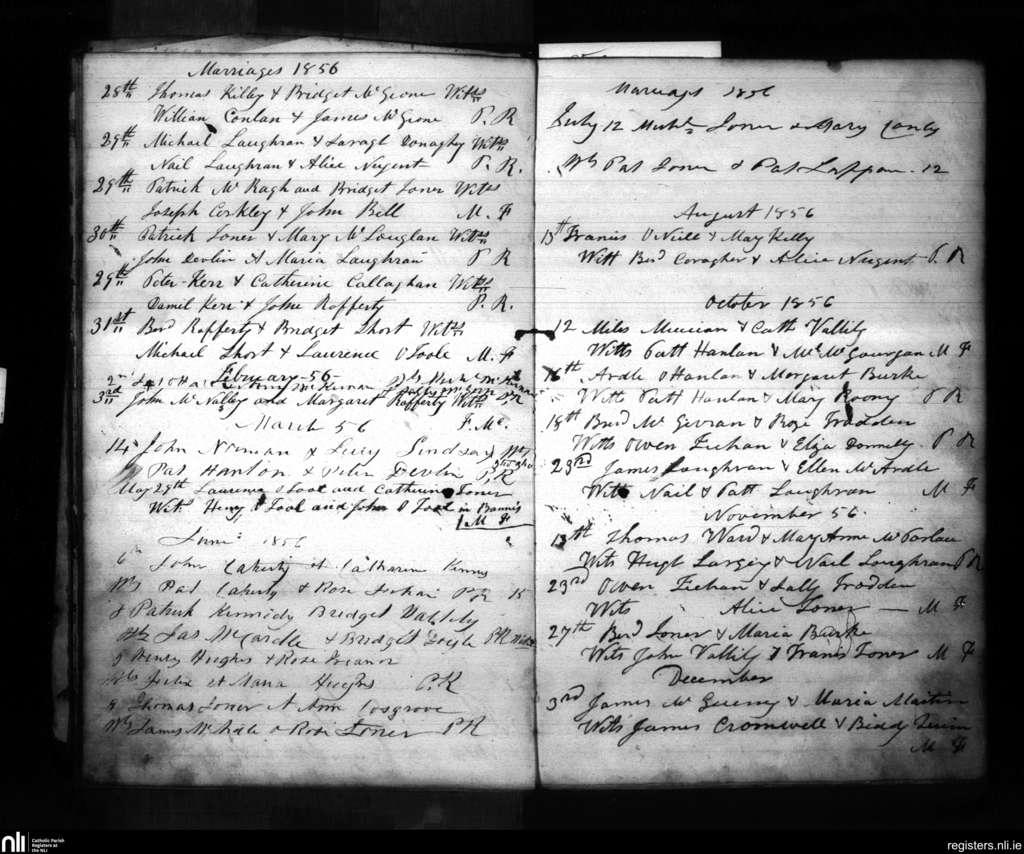 Marriages 1856
28th Thomas Kilby & Bridget McGeone Wits
William Conlan & James McGeone P. R
29th Michael Laughran & Saragh Donaghy Wits
Nail Laughran & Alice Nugent P. R.
29th Patrick McKagh and Bridget Toner Wits
Joseph Corkley & John Bell M. F
30th Patrick Toner & Mary McLouglan Wits
John Devlin & Maria Laughran P R
29th Peter Kerr & Catherine Callaghan Wits
Daniel Kerr & John Rafferty P. R.
31st Bernd Rafferty & Bridget Short Wits
Michael Short & Laurence O Toole M. F
February - 56 -
2nd
3rd John McNally and Margaret Rafferty Wits
March 56 F. Mc.
14 John Norman & Lucy Lindsay
Pat Hanlon & Peter Devlin P R
May 29th Laurence O Tool and Catherine Toner
Wit. Henry O Tool and John O Tool in Bannis
M F
June 1856
6th John Laherty et Catharine
Ws Pat Laherty & Rose PR 15
8 Patrick Kennedy Bridget
Jas McCardle & Bridget Doyle PR
8 Henry Hughes & Rose
Ws Felix et Maria Hughes P. R
9 Thomas Toner & Ann Cosgrove
Ws James McArdle & Rose Toner PR
Marriags 1856
July 12 Michl Toner & Mary Canly
Ws Pat Toner & Pat Lappan. 12
August 1856
13th Francis O Neill & Mary Kelly
Witt Bernd Coragher & Alice Nugent P. R
October 1856
12 Miles & Cath Vallily
Witts Patt Hanlan & McGeurgan M F
16th Ardle O Hanlan & Margaret Burke
Wits Patt Hanlan & Mary Roony P R
18th Bernd McGivran & Rose Trodden
Witts Owen Feehan & Eliza Donnelly P R
23rd James Loughran & Ellen McArdle
Wits Nail & Patt Laughran M F
November 56.
13th Thomas Ward & Mary Anne McParlan
Wits Hugh Largey & Nail Loughran P R
23rd Owen Feehan & Sally Trodden
Wits Alice Toner — M F
27th Bernd Toner & Maria Burke
Wits John Vallily & Francis Toner M F
December
3rd James McGueny & Maria Martin
Wits James Cromwell & Biddy
M F
nli Catholic Parish Registers at the NLI
registers.nli.ie